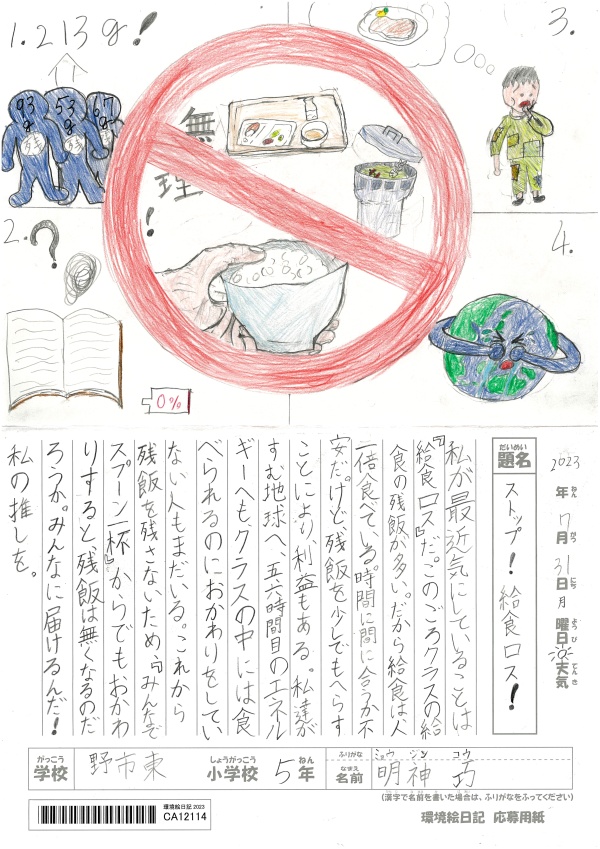 1.213g!
93g
53g
67g
無理!
3.
2.?
4.
0%
だいめい
題名
ストップ!給食ロス!
2023年7月31日月曜日
ねん
がつ
にち
ようび
天気
てんき
私が最近気にしていることは
『給食ロス』だ。このごろクラスの給
食の残飯が多い。だから給食は人
一倍食べている。時間に間に合うか不
安だ。けど、残飯を少しでもへらす
ことにより、利益もある。私達が
すむ地球へ、五六時間目のエネル
ギーへも。クラスの中には食
べられるのにおかわりをしてい
ない人もまだいる。これから
残飯を残さないため、みんなで
スプーン一杯』からでもおかわ
りすると残飯は無くなるのだ
ろうか。みんなに届けるんだ!
私の推しを。
がっこう
学校
野市東
しょうがっこう
小学校
5年
ねん
ふりがな
ミョウジンコウ
なまえ
名前
明神巧
(漢字で名前を書いた場合は、ふりがなをふってください)
環境絵日記2023
CA12114
環境絵日記 応募用紙